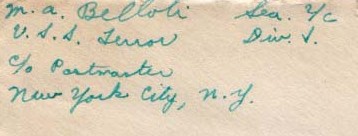 M. A. Belloti Sea. 2/c
U.S.S. Terror Div. S.
c/o Postmaster
New York City, N.Y.